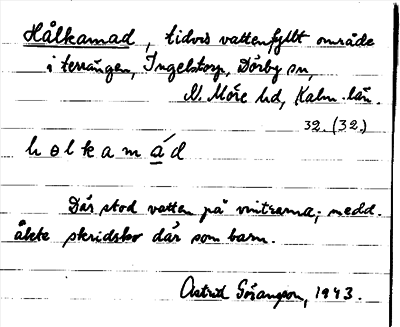 Hålkamad, tidvis vattenfyllt område
i terrängen, Ingelstorp, Dörby sn,
N. Möre hd, Kalm. län.
32. (32.)
h o l k a m á d
Där stod vatten på vintrarna; medd.
åkte skridsko där som barn.
Astrid Göransson, 1943.